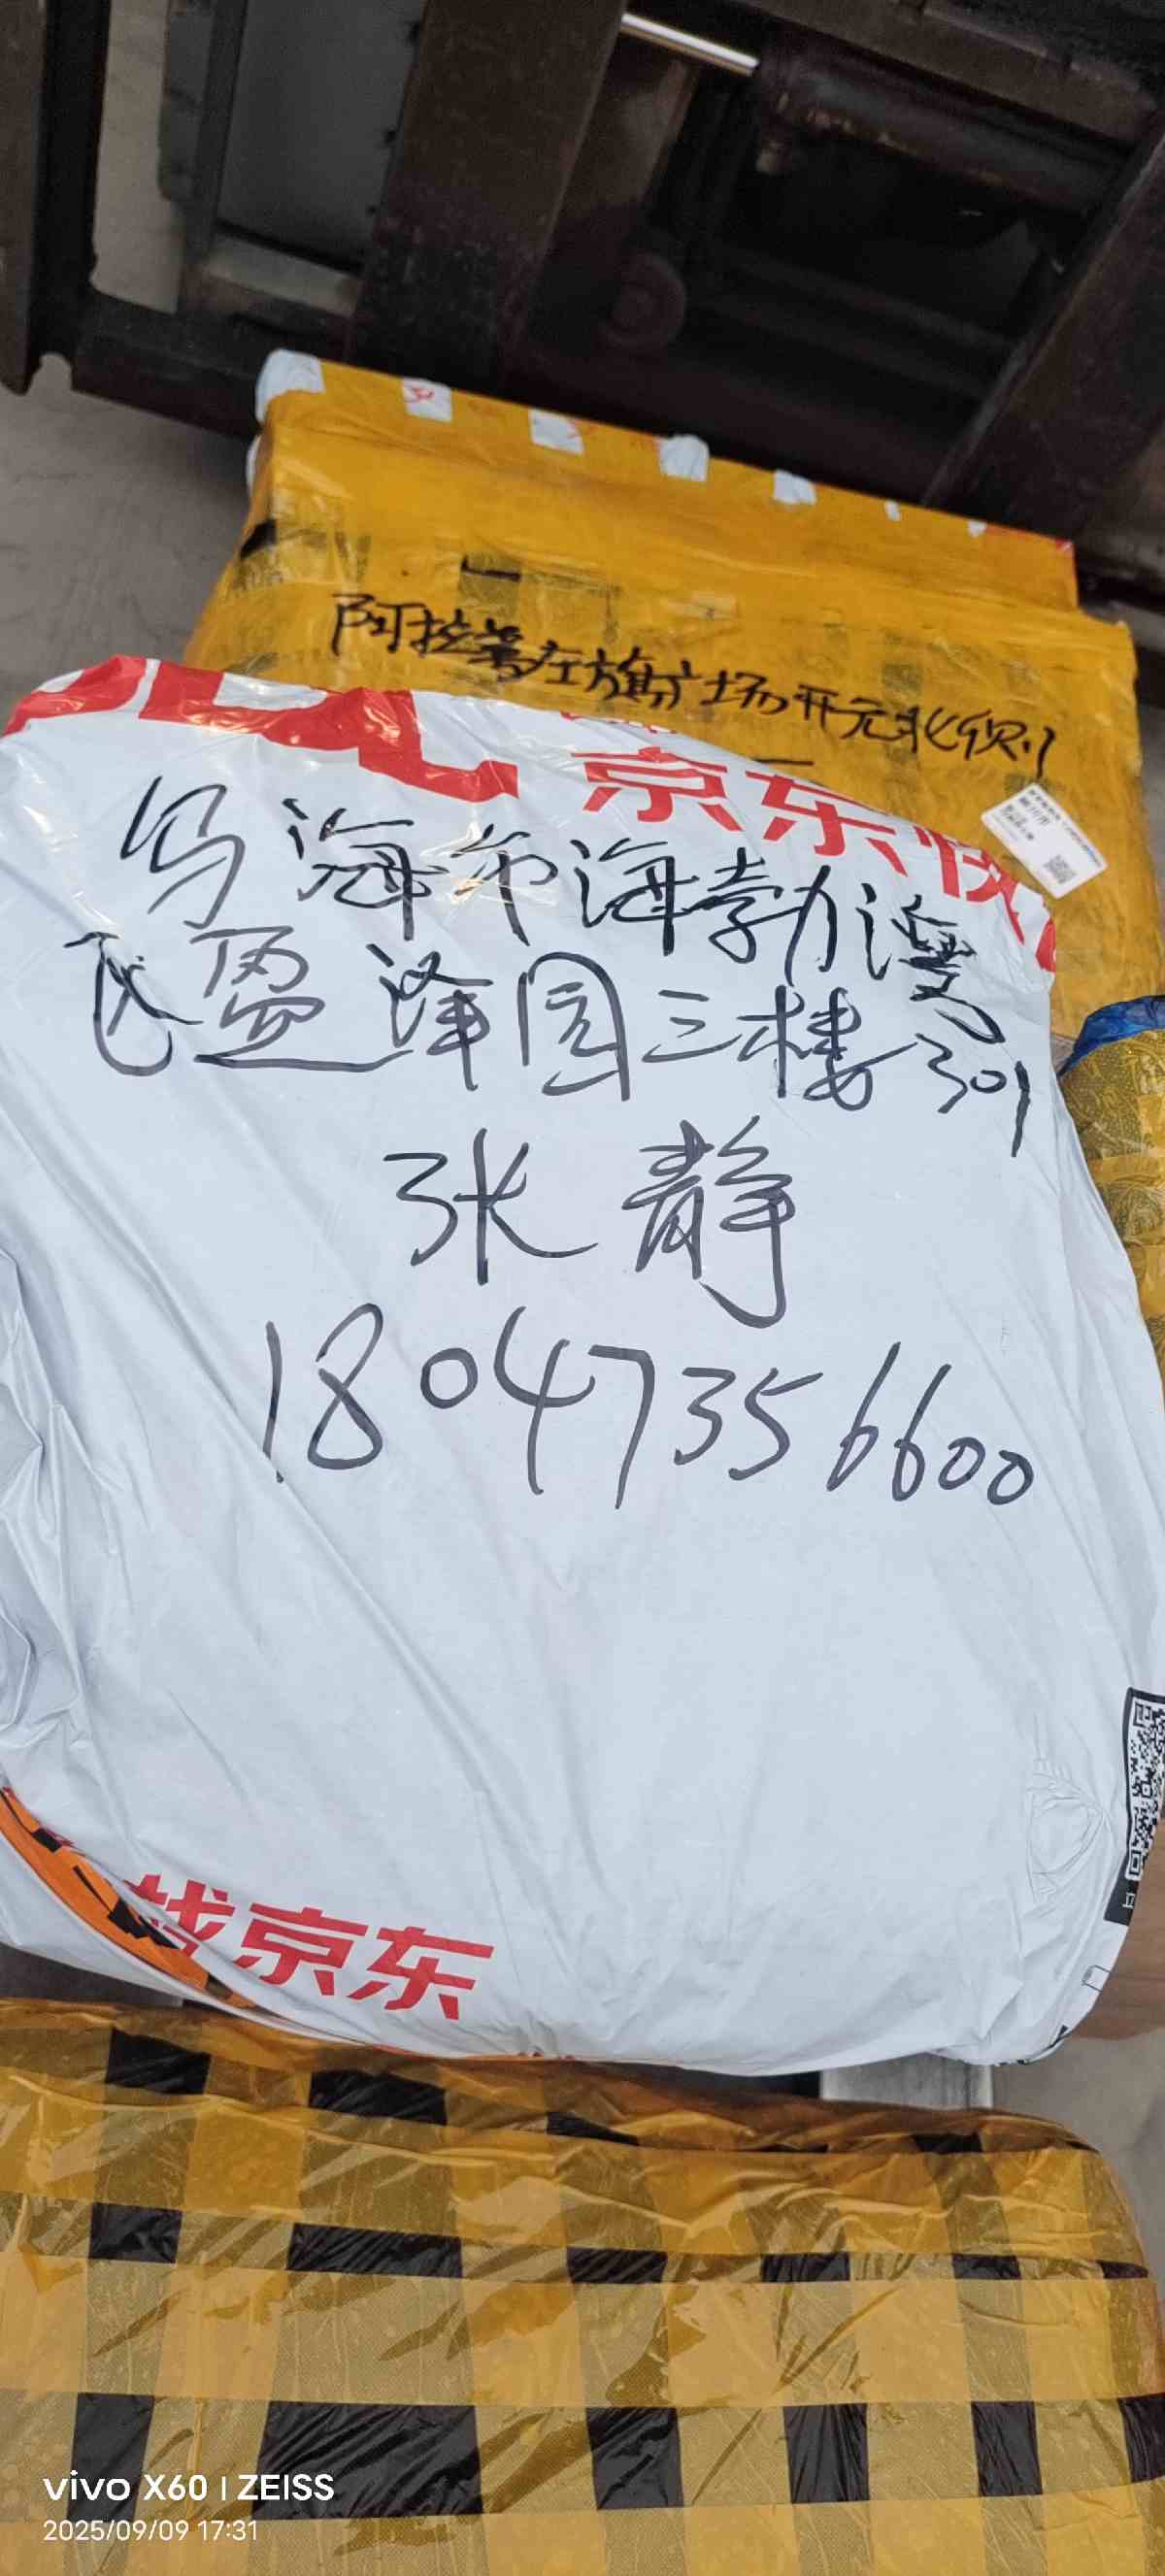 阿拉善左旗广场开元北侧
京东快
乌海市海勃湾
飞盈泽园三楼301
张静
18047356600
找京东
vivo X60 | ZEISS
2025/09/09 17:31